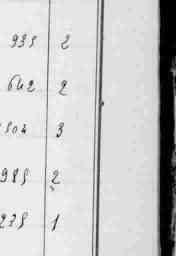 935 2
642 2
504 3
985 2
235 1